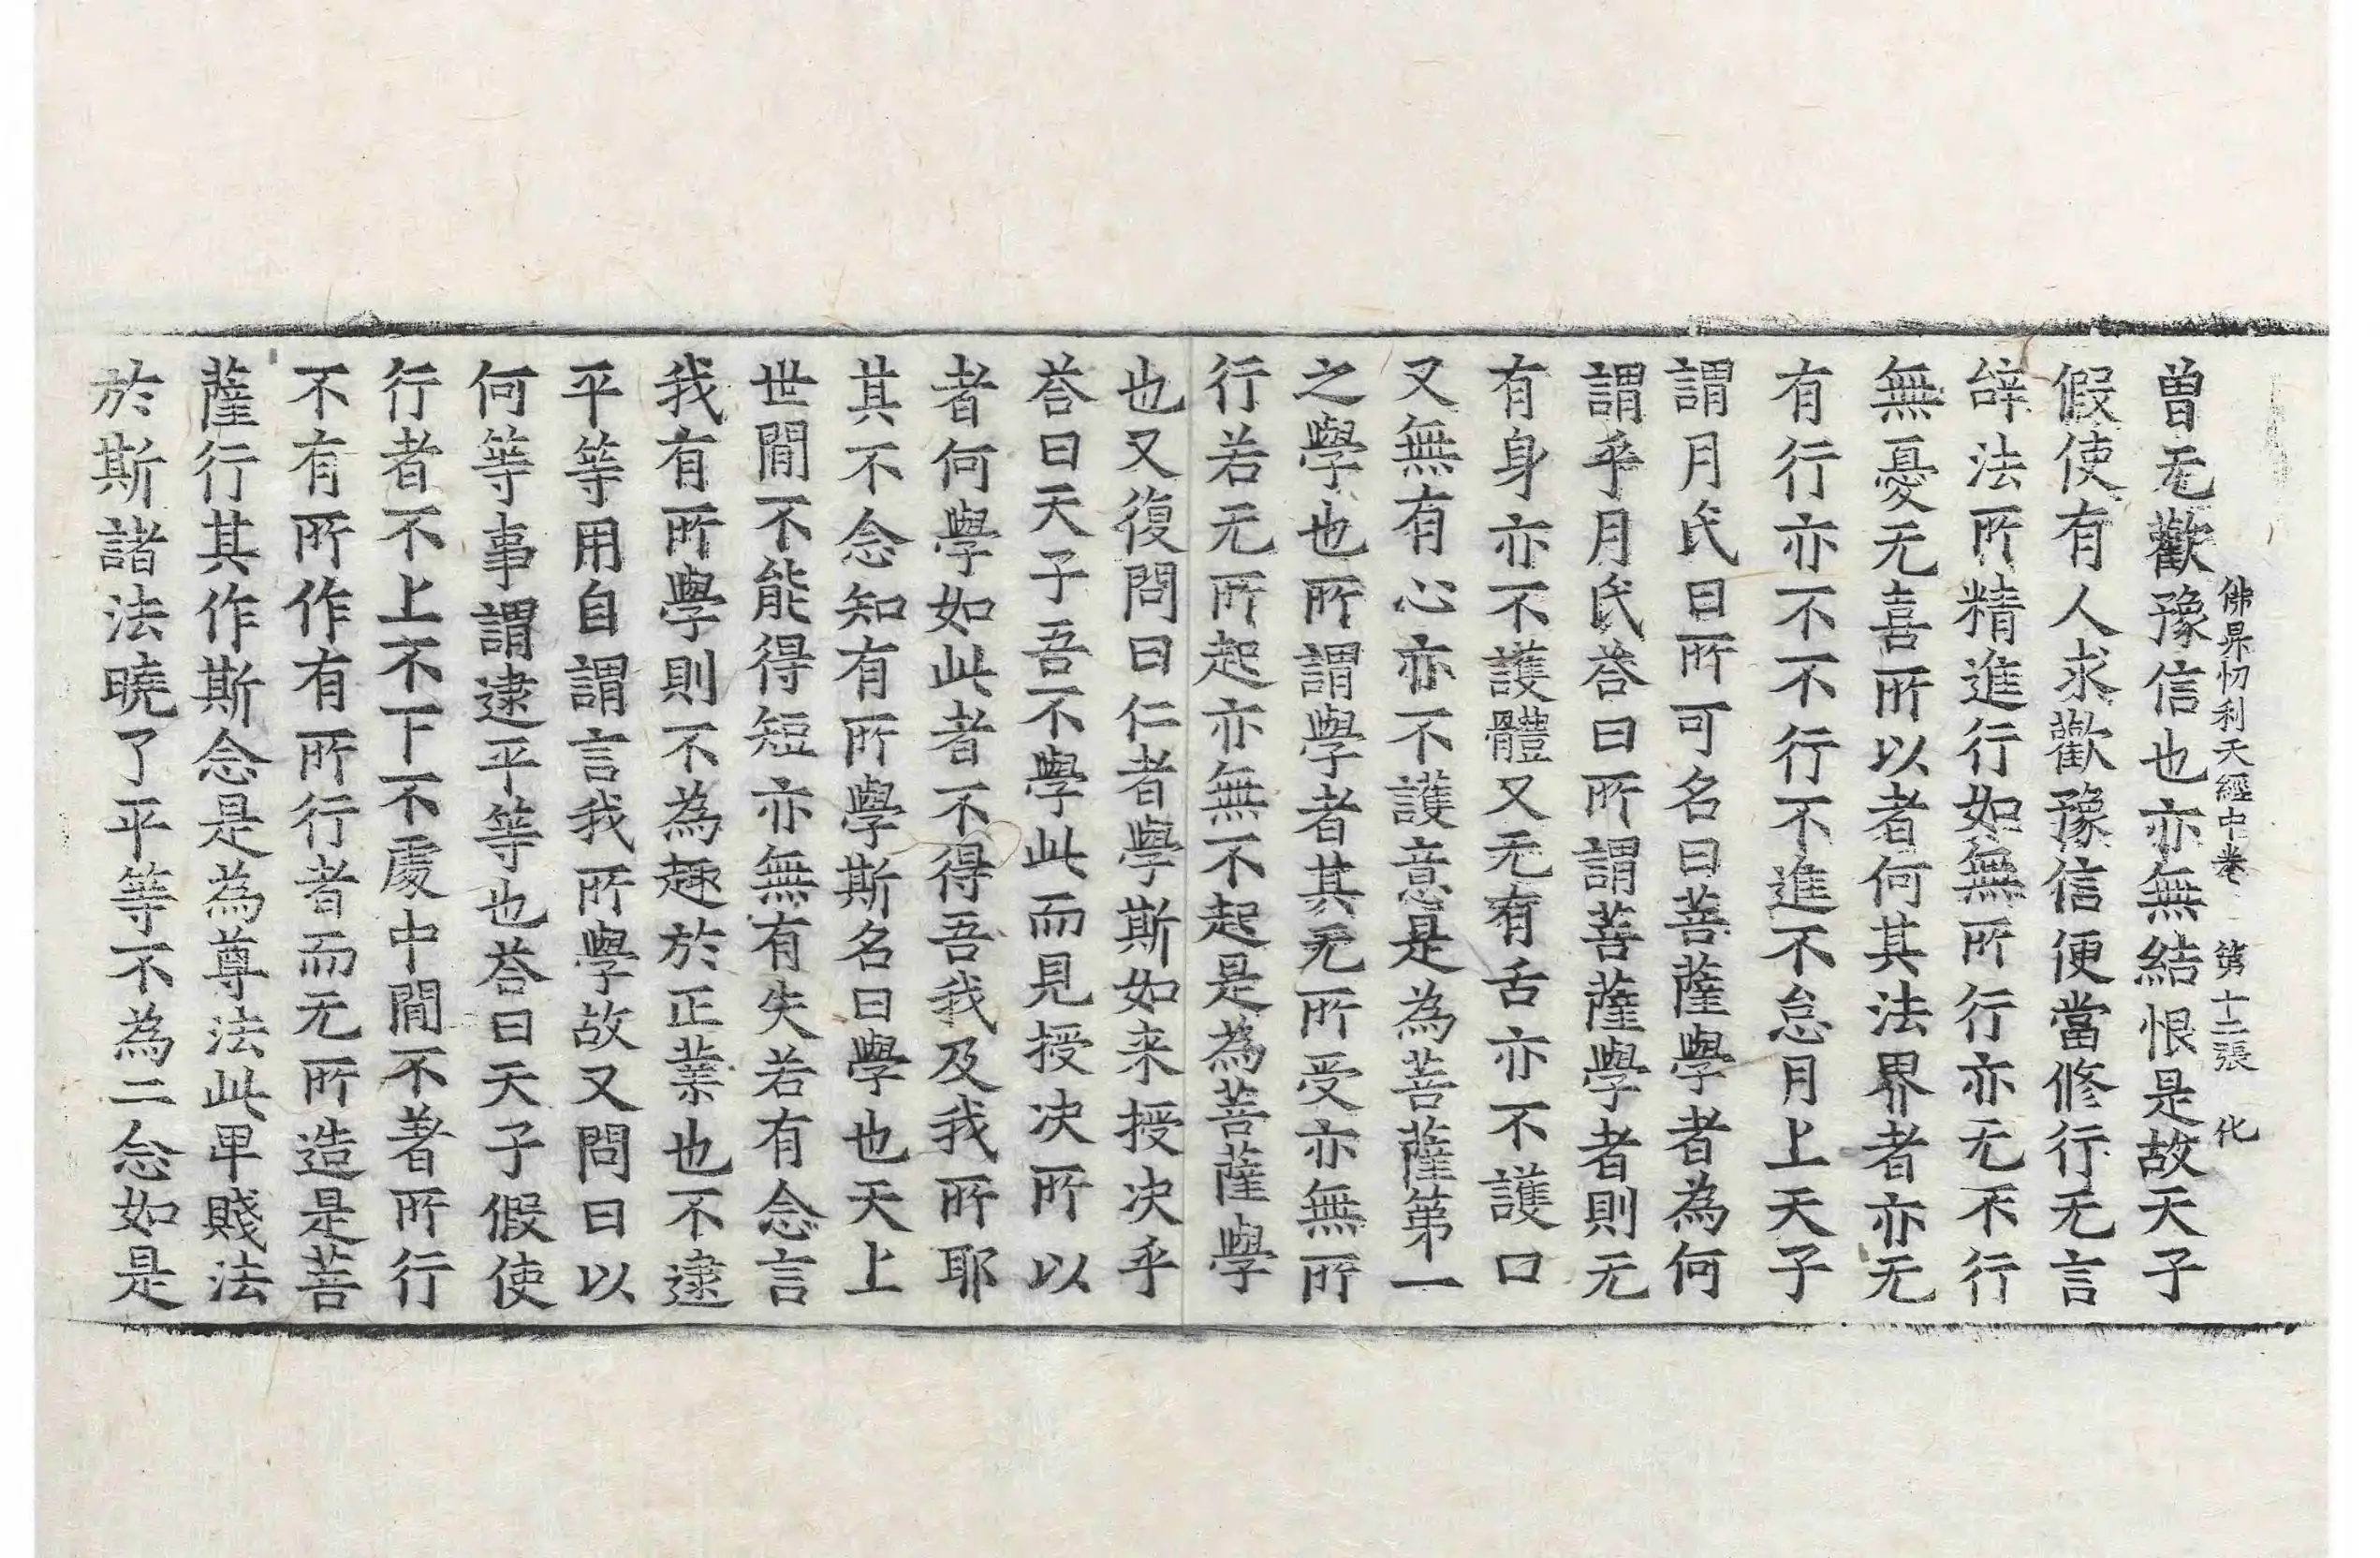 佛昇忉利天經中卷 第十二張 化
曽无歡豫信也亦無結恨是故天子
假使有人求歡豫信便當修行无言
辝法所精進行如無所行亦无不行
無憂无喜所以者何其法界者亦无
有行亦不不行不進不怠月上天子
謂月氏曰所可名曰菩薩學者為何
謂乎月氏荅曰所謂菩薩學者則无
有身亦不護體又无有舌亦不護口
又無有心亦不護意是為菩薩第一
之學也所謂學者其无所受亦無所
行若无所起亦無不起是為菩薩學
也又復問曰仁者學斯如来授决乎
荅曰天子吾不學此而見授决所以
者何學如此者不得吾我及我所耶
其不念知有所學斯名曰學也天上
世閒不能得短亦無有失若有念言
我有所學則不為趣於正業也不逮
平等用自謂言我所學故又問曰以
何等事謂逮平等也荅曰天子假使
行者不上不下不處中閒不著所行
不有所作有所行者而无所造是菩
薩行其作斯念是為尊法此卑賤法
於斯諸法曉了平等不為二念如是